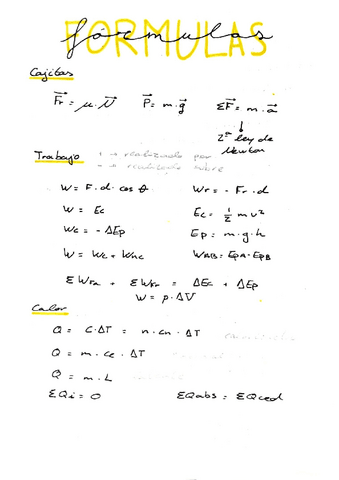 FORMULAS
fórmulas
Cajitas
Fr = μ · N P = m · g ΣF = m · a
2ª ley de
Newton
Trabajo + → realizado por
- → realizado sobre
W = F · d · cos θ Wr = - Fr · d
W = Ec Ec = 1/2 m v²
Wc = - ΔEp Ep = m · g · h
W = Wc + Wnc WAB = EpA - EpB
ΣWFa + ΣWFr = ΔEc + ΔEp
W = p · ΔV
Calor
Q = C · ΔT = n · cn · ΔT
Q = m · ce · ΔT
Q = m · L
ΣQi = 0 ΣQabs = ΣQced